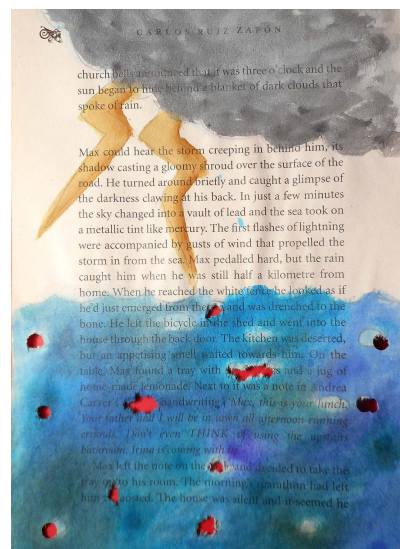 CARLOS RUIZ ZAFÓN
church bells announced that it was three o'clock and the
sun began to hide behind a blanket of dark clouds that
spoke of rain.
Max could hear the storm creeping in behind him, its
shadow casting a gloomy shroud over the surface of the
road. He turned around briefly and caught a glimpse of
the darkness clawing at his back. In just a few minutes
the sky changed into a vault of lead and the sea took on
a metallic tint like mercury. The first flashes of lightning
were accompanied by gusts of wind that propelled the
storm in from the sea. Max pedalled hard, but the rain
caught him when he was still half a kilometre from
home. When he reached the white he looked as if
he'd just emerged from the and was drenched to the
bone. He left the bicycle in the shed and went into the
house through the back door. The kitchen was deserted,
but an appetising smell wafted towards him. On the
table, Max found a tray with and a jug of
home-made lemonade. Next to it was a note in Andrea
Carver's handwriting: 'Max, this is your lunch.
Your father and I will be in town all afternoon running
errands. Don't even THINK of using the upstairs
bathroom. Irina is coming with
Max left the note on the and decided to take the
tray to his room. The morning's marathon had left
him The house was silent and it seemed he